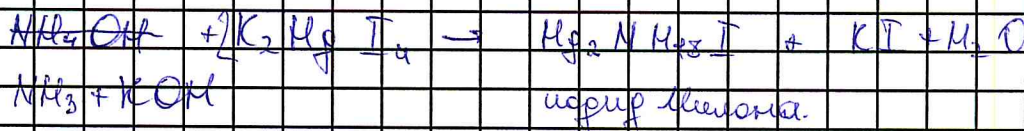 NH₄OH + 2K₂HgI₄ → Hg₂NH₂I + KI + H₂O
NH₃ + KOH иодид Милона.